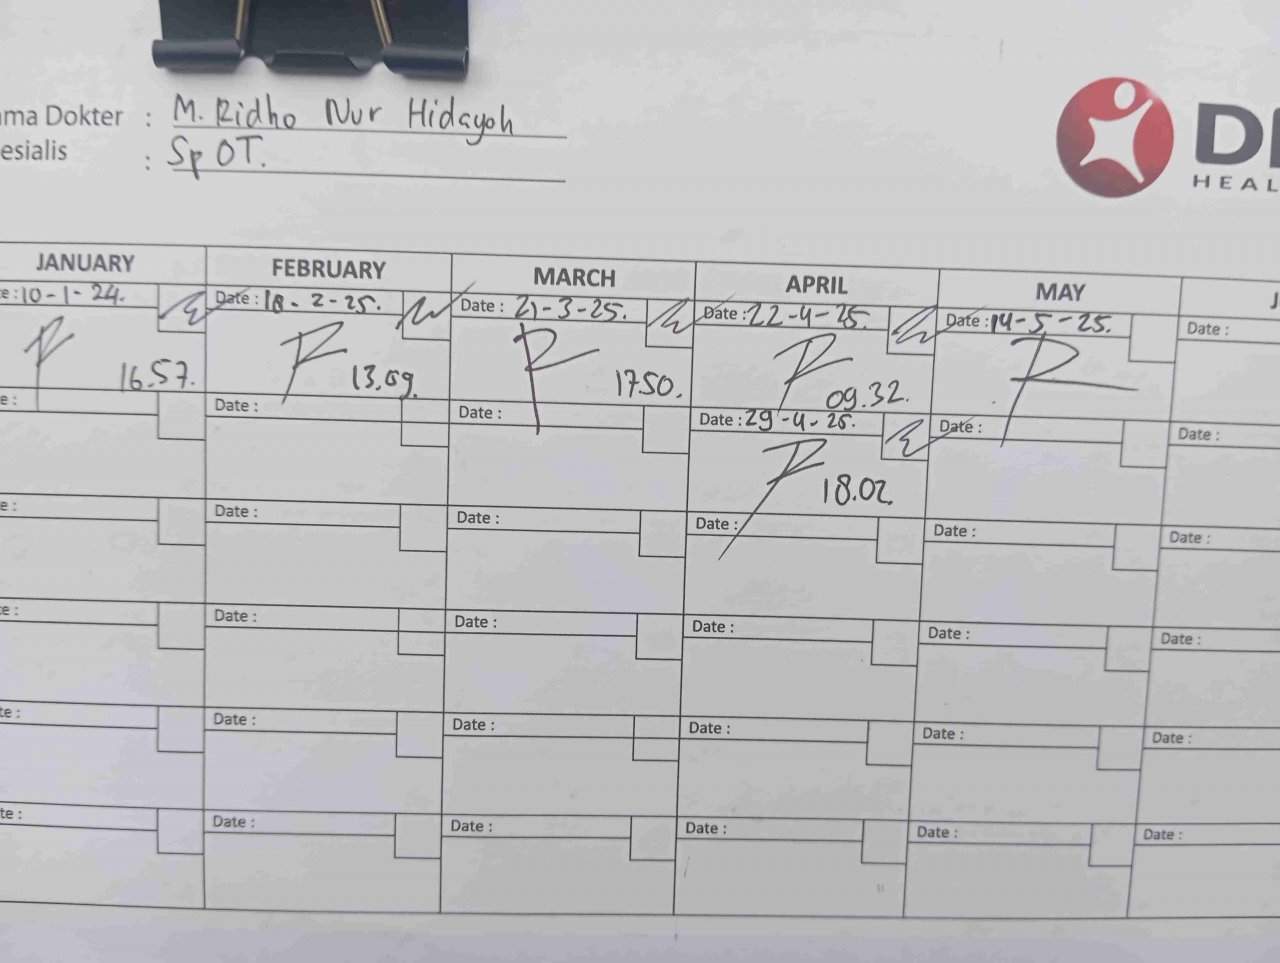 ma Dokter : M. Ridho Nur Hidayah
esialis : Sp OT.
HEAL
JANUARY FEBRUARY MARCH APRIL MAY J
e : 10-1-24. Date : 18-2-25. Date : 21-3-25. Date : 22-4-25. Date : 14-5-25. Date :
16.57. 13.09. 1750. 09.32.
e : Date : Date : Date : 29-4-25. Date : Date :
18.02.
e : Date : Date : Date : Date : Date :
e : Date : Date : Date : Date : Date :
te : Date : Date : Date : Date : Date :
te : Date : Date : Date : Date : Date :